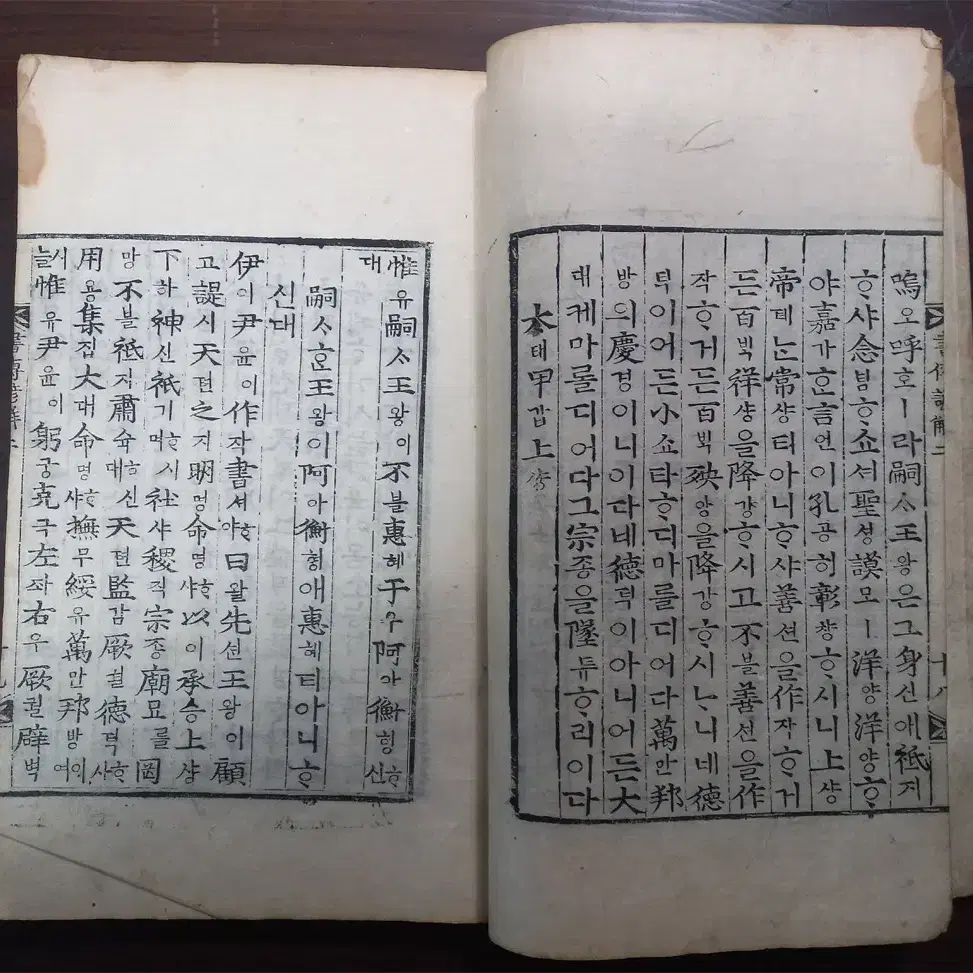 嗚오呼호ㅣ라嗣ᄉᆞ王왕은그身신애祗지
ᄒᆞ샤念념ᄒᆞ쇼셔聖셩謨모ㅣ洋양洋양ᄒᆞ
야嘉가ᄒᆞᆫ言언이孔공히彰챵ᄒᆞ시니上샹
帝뎨ᄂᆞᆫ常샹티아니ᄒᆞ샤善션을作작ᄒᆞ거
든百ᄇᆡᆨ祥샹을降강ᄒᆞ시고不블善션을作
작ᄒᆞ거든百ᄇᆡᆨ殃앙을降강ᄒᆞ시ᄂᆞ니네德
덕이어든小쇼타ᄒᆞ디마를디어다萬만邦
방의慶경이니이다네德덕이아니어든大
대케마롤디어다그宗종을墜튜ᄒᆞ리이다
太태甲갑上샹
書傳諺解二 十八
惟유嗣ᄉᆞ王왕이不블惠혜于우阿아衡형ᄒᆞ신대
嗣ᄉᆞᄒᆞᆫ王왕이阿아衡형애惠혜티아니ᄒᆞ
신대
伊이尹윤이作작書셔ᄒᆞ야曰왈先션王왕이顧
고諟시天텬之지明명命명ᄒᆞ샤以이承승上샹
下하神신祇기ᄒᆞ시며社샤稷직宗종廟묘를罔
망不블祗지肅슉ᄒᆞ신대天텬監감厥궐德덕ᄒᆞ샤
用용集집大대命명ᄒᆞ샤撫무綏유萬만邦방이어시
늘惟유尹윤이躬궁克극左좌右우厥궐辟벽
書傳諺解二